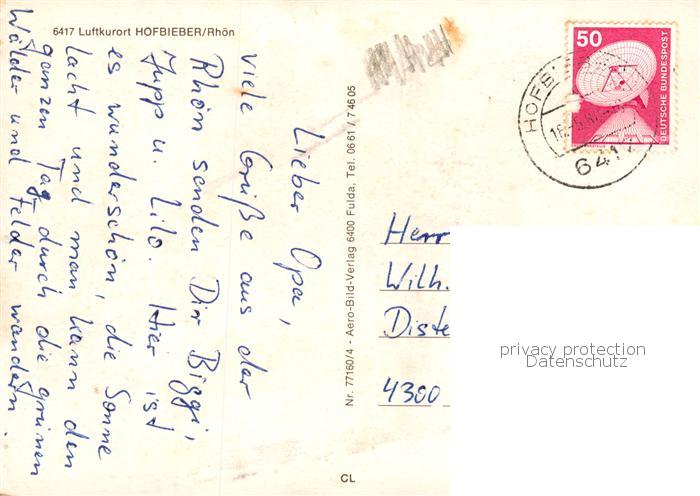 6417 Luftkurort HOFBIEBER/Rhön
Lieber Opa,
viele Grüße aus der
Rhön senden Dir Biggi,
Jupp u. Lilo. Hier ist
es wunderschön, die Sonne
lacht und man kann den
ganzen Tag durch die grünen
Wälder und Felder wandern.
Nr. 77160/4 - Aero-Bild-Verlag 6400 Fulda, Tel. 06 61 / 7 46 05
CL
50
DEUTSCHE BUNDESPOST
HOFB
6417
Herr
Wilh.
Diste
4300
privacy protection
Datenschutz